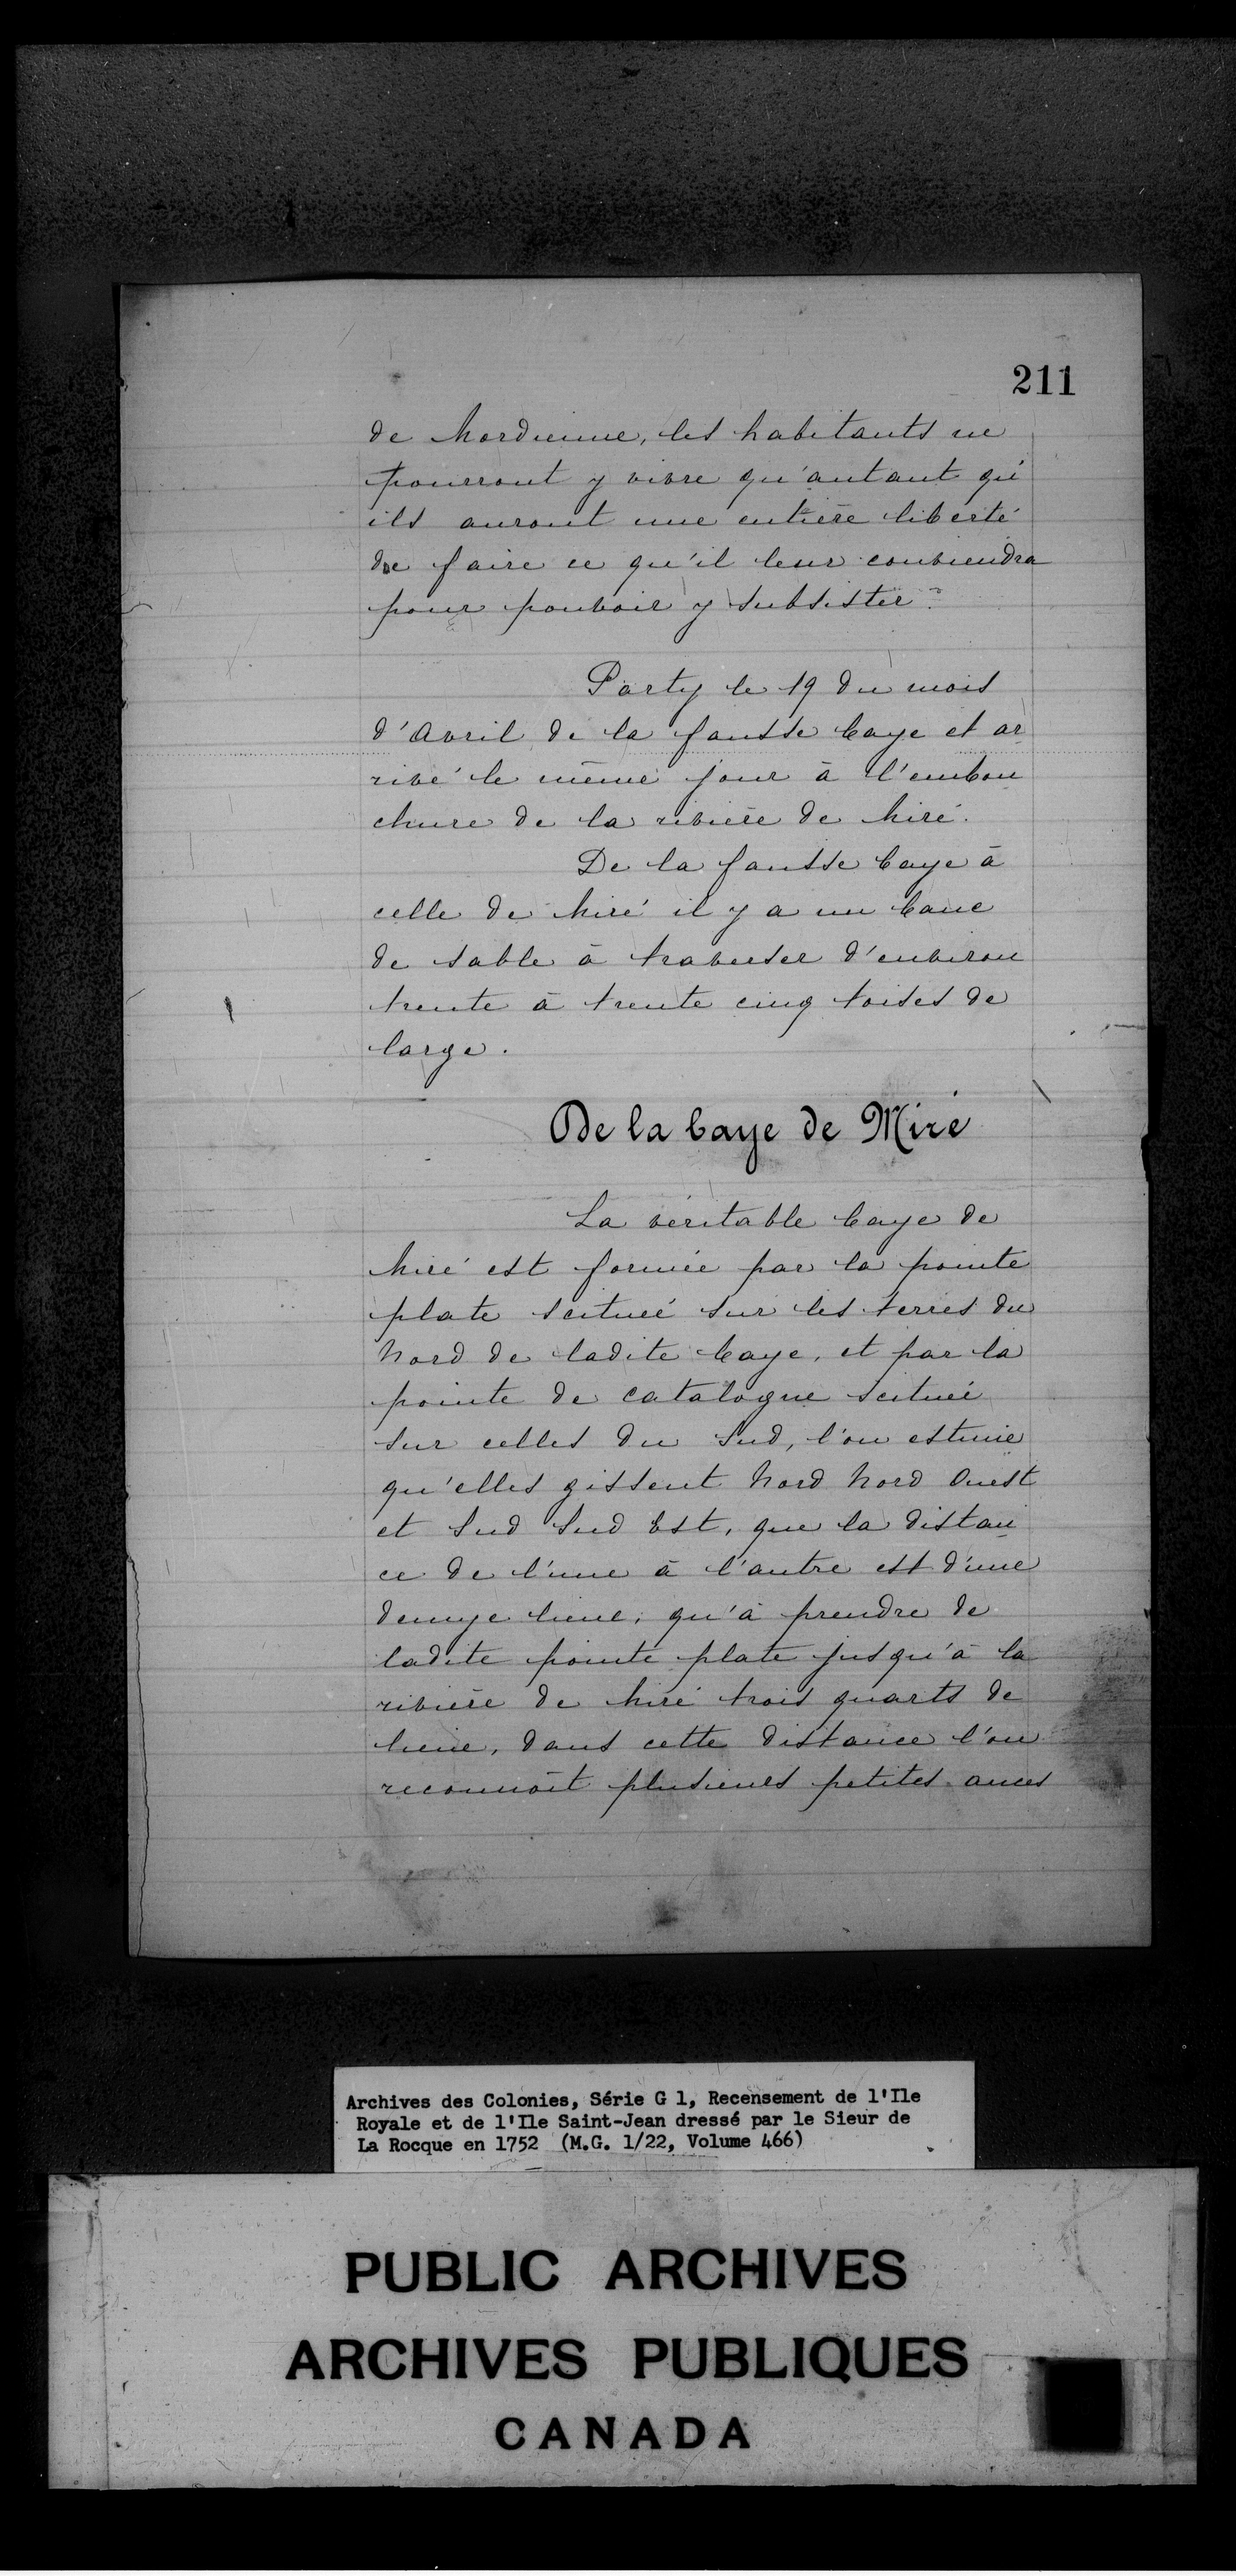 211
de Mordienne, les habitants ne
pourront y vivre qu'autant qu'
ils auront une entière liberté
de faire ce qu'il leur conviendra
pour pouvoir y subsister.
Party le 19 du mois
d'Avril de la fausse baye et ar
rivé le même jour à l'embou
chure de la rivière de Miré.
De la fausse baye à
celle de Miré il y a un banc
de sable à traverser d'environ
trente à trente cinq toises de
large.
De la baye de Miré
La véritable baye de
Miré est formée par la pointe
plate scituée sur les terres du
Nord de ladite baye, et par la
pointe de Catalogne scituée
sur celles du Sud, l'on estime
qu'elles gissent Nord Nord Ouest
et Sud Sud Est, que la distan
ce de l'une à l'autre est d'une
demye lieue, qu'à prendre de
ladite pointe plate jusqu'à la
rivière de Miré trois quarts de
lieue, dans cette distance l'on
reconnoit plusieurs petites ances
Archives des Colonies, Série G 1, Recensement de l'Ile
Royale et de l'Ile Saint-Jean dressé par le Sieur de
La Rocque en 1752 (M.G. 1/22, Volume 466)
PUBLIC ARCHIVES
ARCHIVES PUBLIQUES
CANADA